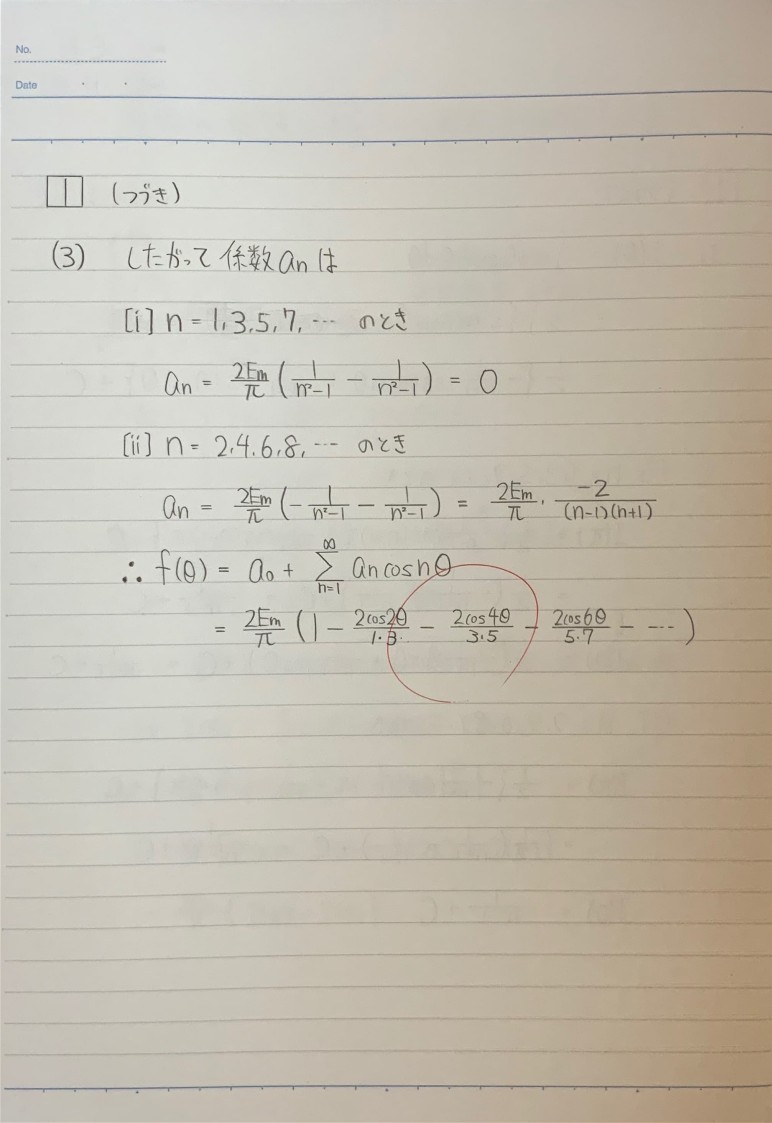 No.
Date
1 (つづき)
(3) したがって係数anは
[i] n = 1,3,5,7, … のとき
an = 2Em/π (1/(n²-1) - 1/(n²-1)) = 0
[ii] n = 2,4,6,8, … のとき
an = 2Em/π (-1/(n²-1) - 1/(n²-1)) = 2Em/π · -2/((n-1)(n+1))
∴ f(θ) = a₀ + Σ_{n=1}^{∞} an cos nθ
= 2Em/π (1 - 2cos2θ/1·3 - 2cos4θ/3·5 - 2cos6θ/5·7 - …)